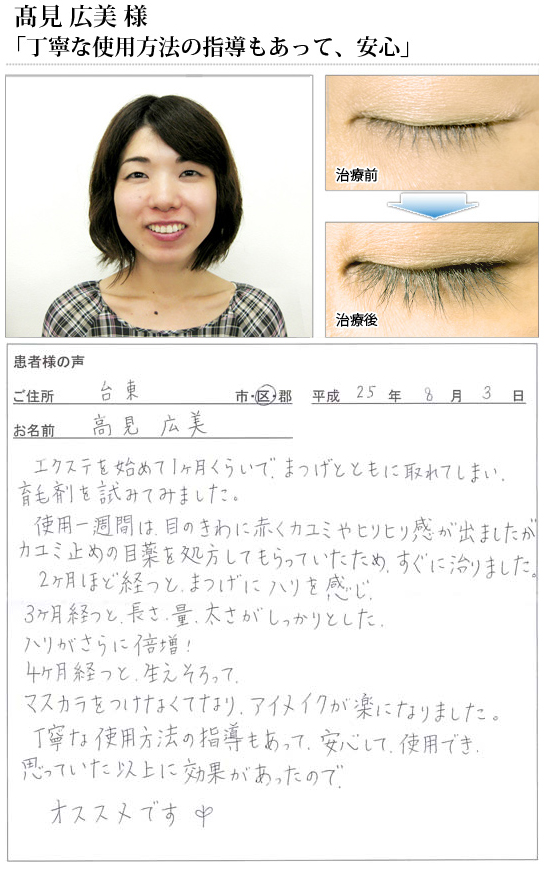 髙見 広美 様
「丁寧な使用方法の指導もあって、安心」
治療前
治療後
患者様の声
ご住所 台東 市・区・郡 平成 25 年 8 月 3 日
お名前 高見 広美
エクステを始めて1ヶ月くらいで、まつげとともに取れてしまい、
育毛剤を試みてみました。
使用一週間は、目のきわに赤くカユミやヒリヒリ感が出ましたが
カユミ止めの目薬を処方してもらっていたため、すぐに治りました。
2ヶ月ほど経つと、まつげにハリを感じ、
3ヶ月経つと、長さ、量、太さがしっかりとした、
ハリがさらに倍増!
4ヶ月経つと、生えそろって、
マスカラをつけなくてなり、アイメイクが楽になりました。
丁寧な使用方法の指導もあって、安心して、使用でき、
思っていた以上に効果があったので、
オススメです